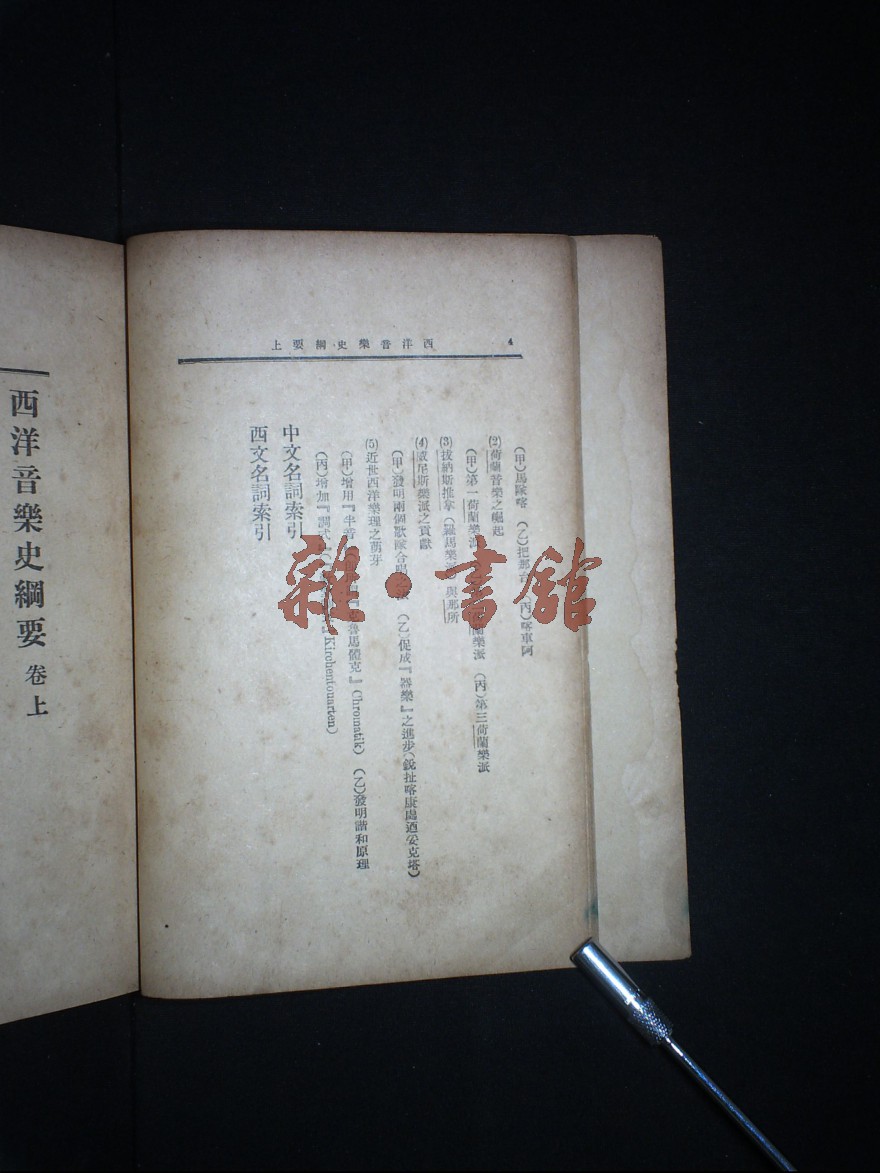 4
西洋音樂史綱要上
(甲)馬歐喀 (乙)把那 (丙)喀車阿
(2)荷蘭音樂之崛起
(甲)第一荷蘭樂派 蘭樂派 (丙)第三荷蘭樂派
(3)拔納斯推拿(羅馬樂派)與那所
(4)威尼斯樂派之貢獻
(甲)發明兩個歌隊合唱 (乙)促成『器樂』之進步(銳扯喀康處迺妥克塔)
(5)近世西洋樂理之萌芽
(甲)增用『半音 魯馬體克』(Chromatik) (乙)發明諧和原理
(丙)增加『調式』 Kirchentonarten)
中文名詞索引
西文名詞索引
西洋音樂史綱要 卷上
雜·書館